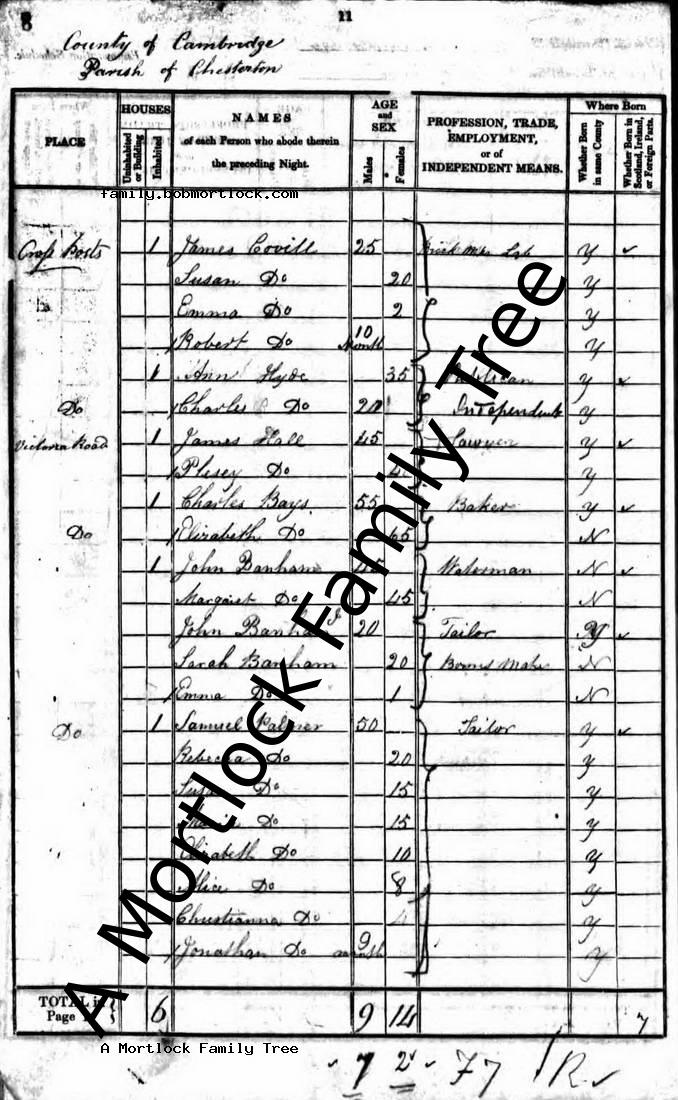 8 11
County of Cambridge
Parish of Chesterton
PLACE
HOUSES
Uninhabited or Building
Inhabited
NAMES
of each Person who abode therein
the preceding Night.
AGE
and
SEX
Males
Females
PROFESSION, TRADE,
EMPLOYMENT,
or of
INDEPENDENT MEANS.
Where Born
Whether Born in same County
Whether Born in Scotland, Ireland, or Foreign Parts.
family.bobmortlock.com
1 James Covill 25 Y
Susan Do 20 Y
Emma Do 2 Y
Robert Do 10 Month Y
1 Ann Hyde 35 Publican Y
Do Charles Do 20 Independent Y
Victoria Road 1 James Hall 45 Y
Do Y
1 Charles Bays 55 Baker Y
Do Elizabeth Do 65 N
1 John Banham 45 Waterman N
Margaret Do 45 N
John Banham 20 Tailor
Sarah Banham 20 N
Emma Do 1 N
Do 1 Samuel Palmer 50 Tailor Y
Rebecca Do 20 Y
Do 15 Y
Do 15 Y
Elizabeth Do 10 Y
Alice Do 8 Y
Christianna Do 4 Y
Jonathan Do 9 month Y
TOTAL in
Page 6 9 14 7
A Mortlock Family Tree
A Mortlock Family Tree
77